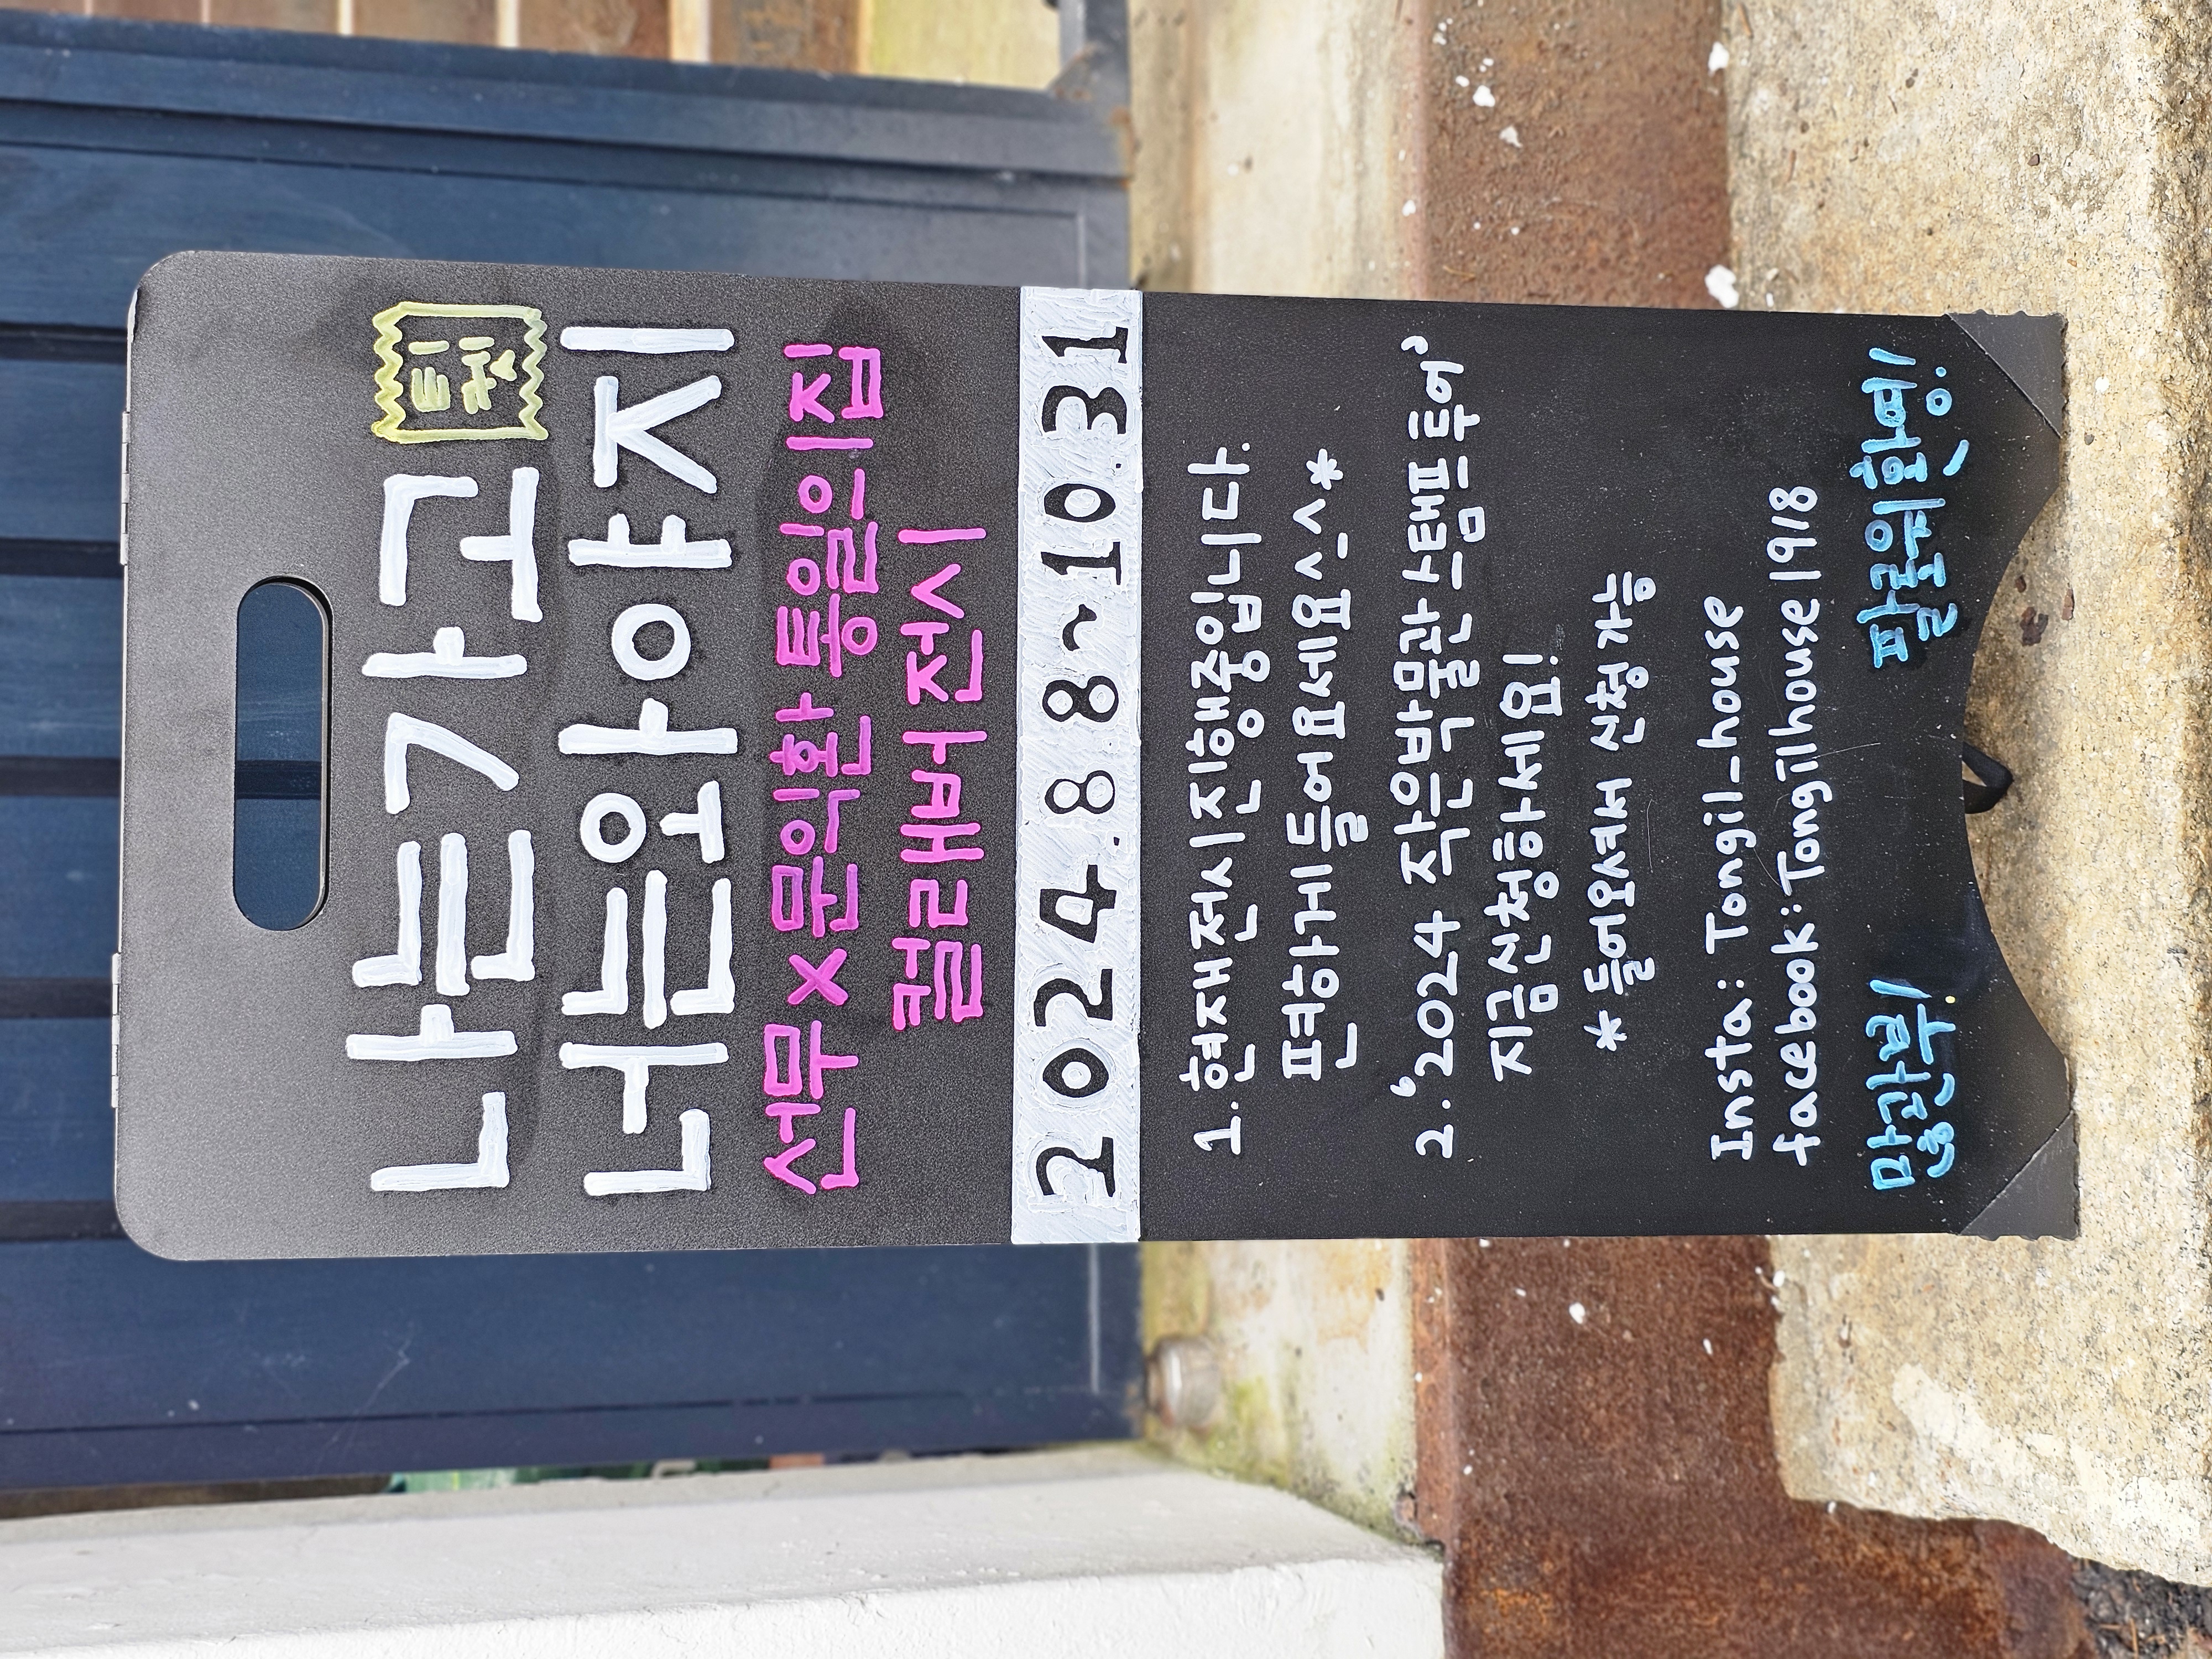 나는 가고 티켓
너는 와야지
선무 X 문익환 통일의 집
컬래버 전시
2024.8.8~10.31
1. 현재 전시 진행중입니다.
편하게 들어오세요^_^*
2. '2024 작은 박물관 스탬프 투어'
지금 신청하세요!
* 들어오셔서 신청 가능
Insta: Tongil_house
facebook: Tongilhouse1918
많관부! 팔로워 환영!